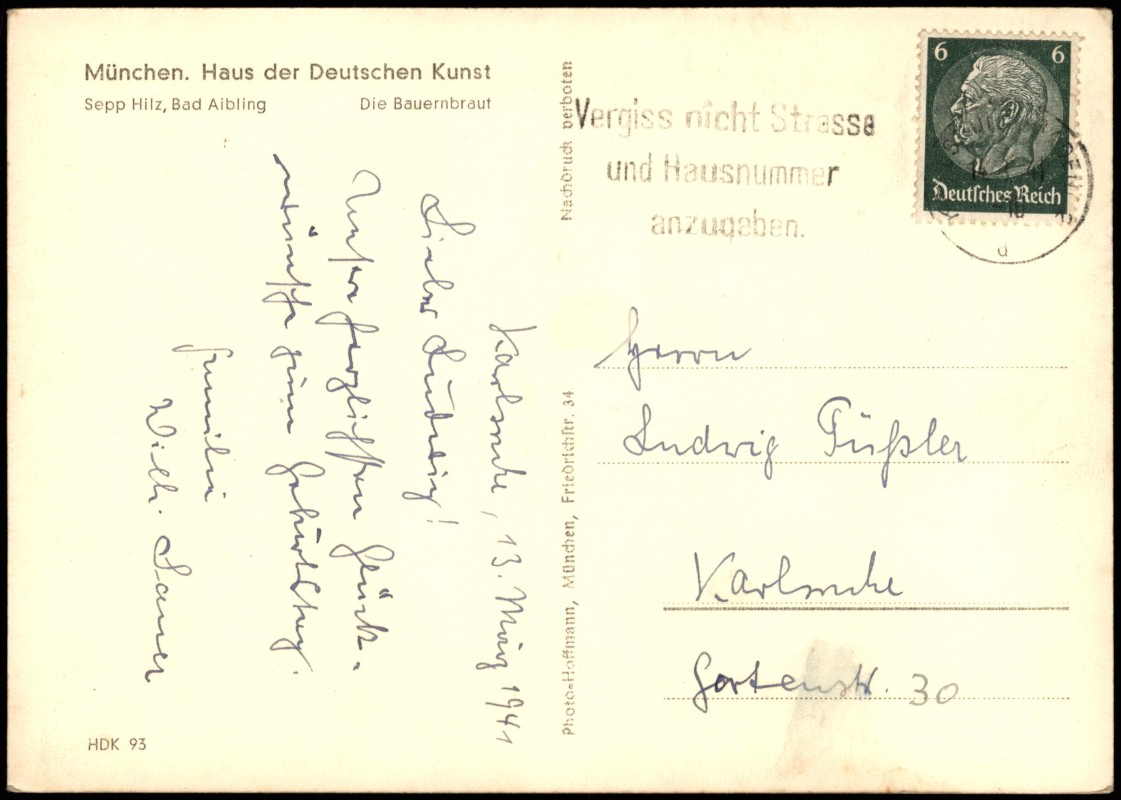 München. Haus der Deutschen Kunst
Sepp Hilz, Bad Aibling Die Bauernbraut
Karlsruhe, 13. März 1941
Lieber Ludwig!
Unsere herzlichsten Glück-
wünsche zum Geburtstag.
Familie
Wilh. Sauer
HDK 93
Nachdruck verboten
Photo=Hoffmann, München, Friedrichstr. 34
Vergiss nicht Strasse
und Hausnummer
anzugeben.
6 6
Deutsches Reich
Herrn
Ludwig Füßler
Karlsruhe
Gartenstr. 30